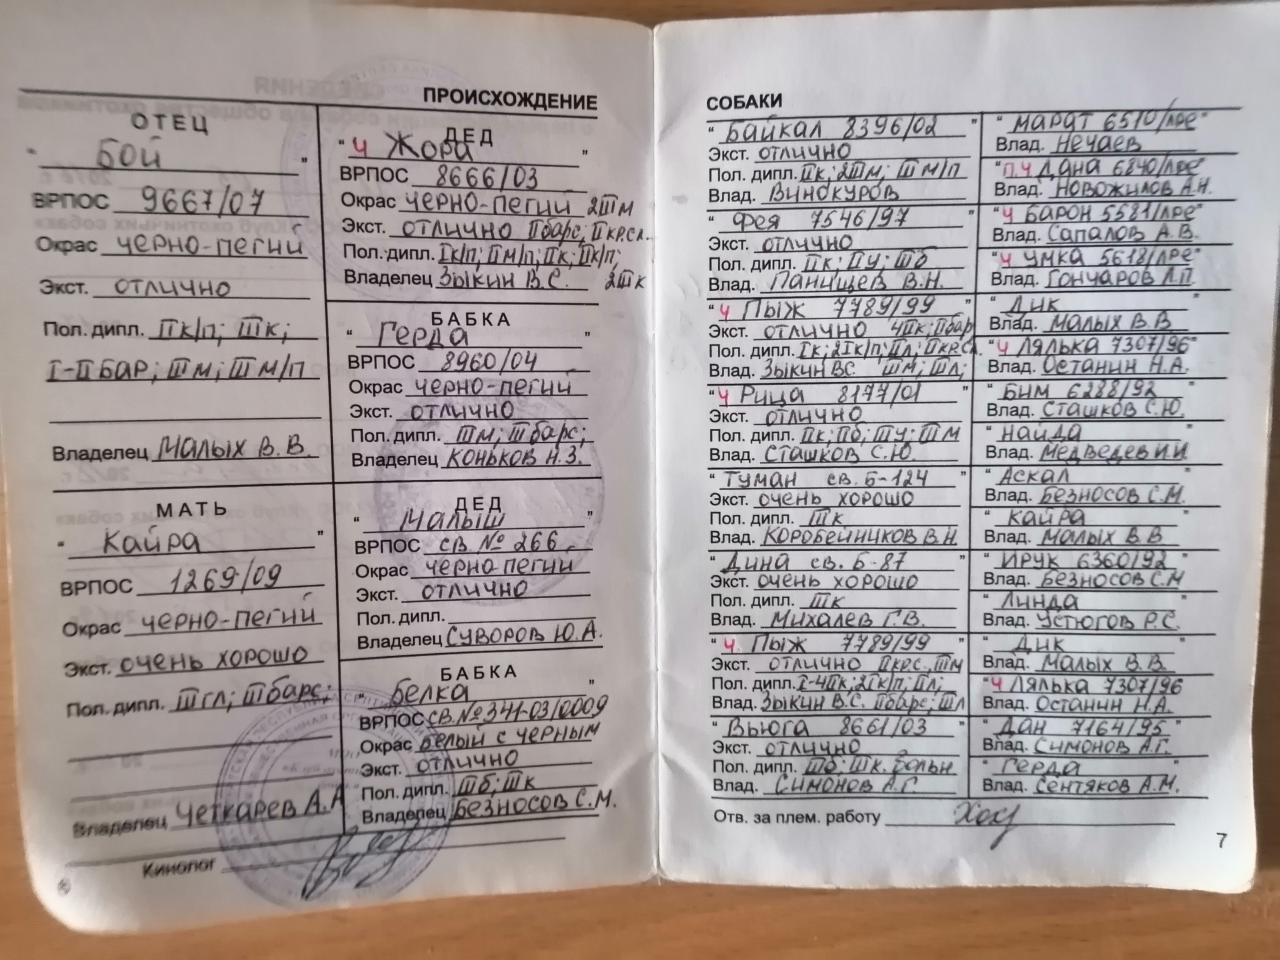 ПРОИСХОЖДЕНИЕ
ОТЕЦ
" Бой "
ВРПОС 9667/07
Окрас черно-пегий
Экст. отлично
Пол. дипл. IIк/п; IIIк;
I-II бар; IIIм; IIIм/п
Владелец Малых В.В.
МАТЬ
" Кайра "
ВРПОС 1269/09
Окрас черно-пегий
Экст. очень хорошо
Пол. дипл. IIIгл; IIIбарс;
Владелец Четкарев А.А
Кинолог
ДЕД
" Ч Жора "
ВРПОС 8666/03
Окрас черно-пегий 2IIIм
Экст. отлично IIбарс; IIкр.сл.
Пол. дипл. Iк/п; IIм/п; IIк; IIк/п;
Владелец Зыкин В.С. 2IIIк
БАБКА
" Герда "
ВРПОС 8960/04
Окрас черно-пегий
Экст. отлично
Пол. дипл. IIIм; IIIбарс;
Владелец Коньков Н.З.
ДЕД
" Малыш "
ВРПОС св. № 266
Окрас черно пегий
Экст. отлично
Пол. дипл.
Владелец Суворов Ю.А.
БАБКА
" Белка "
ВРПОС св.№341-03/0009
Окрас белый с черным
Экст. отлично
Пол. дипл. IIIб; IIIк
Владелец Безносов С.М.
СОБАКИ
" Байкал 8396/02 "
Экст. отлично
Пол. дипл. IIк; 2IIIм; IIIм/п
Влад. Винокуров
" Фея 7546/97 "
Экст. отлично
Пол. дипл. IIк; IIу; IIIб
Влад. Панищев В.Н.
" Ч Пыж 7789/99 "
Экст. отлично 4IIк; IIбар
Пол. дипл. Iк; 2Iк/п; IIл; IIкр.сл.
Влад. Зыкин ВС IIIм; IIIл;
" Ч Рица 8177/01 "
Экст. отлично
Пол. дипл. IIк; IIб; IIIу; IIIм
Влад. Сташков С.Ю.
" Туман св. Б-124 "
Экст. очень хорошо
Пол. дипл. IIIк
Влад. Коробейников В.Н.
" Дина св. Б-87 "
Экст. очень хорошо
Пол. дипл. IIIк
Влад. Михалев Г.В.
" Ч. Пыж 7789/99 "
Экст. отлично IIкр.с., IIIм
Пол. дипл. I-4IIк; 2Iк/п; IIл;
Влад. Зыкин В.С. IIбарс; IIIл
" Вьюга 8661/03 "
Экст. отлично
Пол. дипл. IIIб; IIIк. вольн
Влад. Симонов А.Г.
" Марат 6510/лре "
Влад. Нечаев
" п.ч Дана 6840/лре "
Влад. Новожилов А.Н.
" Ч Барон 5581/лре "
Влад. Сапалов А.В.
" Ч Умка 5618/лре "
Влад. Гончаров Л.П.
" Дик "
Влад. Малых В.В
" Ч Лялька 7307/96 "
Влад. Останин Н.А.
" Бим 6288/92 "
Влад. Сташков С.Ю.
" Найда "
Влад. Медведев И.И
" Аскал "
Влад. Безносов С.М.
" Кайра "
Влад. Малых В.В
" Ирук 6360/92 "
Влад. Безносов С.М
" Линда "
Влад. Устюгов Р.С.
" Дик "
Влад. Малых В.В.
" Ч Лялька 7307/96
Влад. Останин Н.А.
" Дан 7164/95 "
Влад. Симонов А.Г.
" Герда "
Влад. Сентяков А.М.
Отв. за плем. работу
7